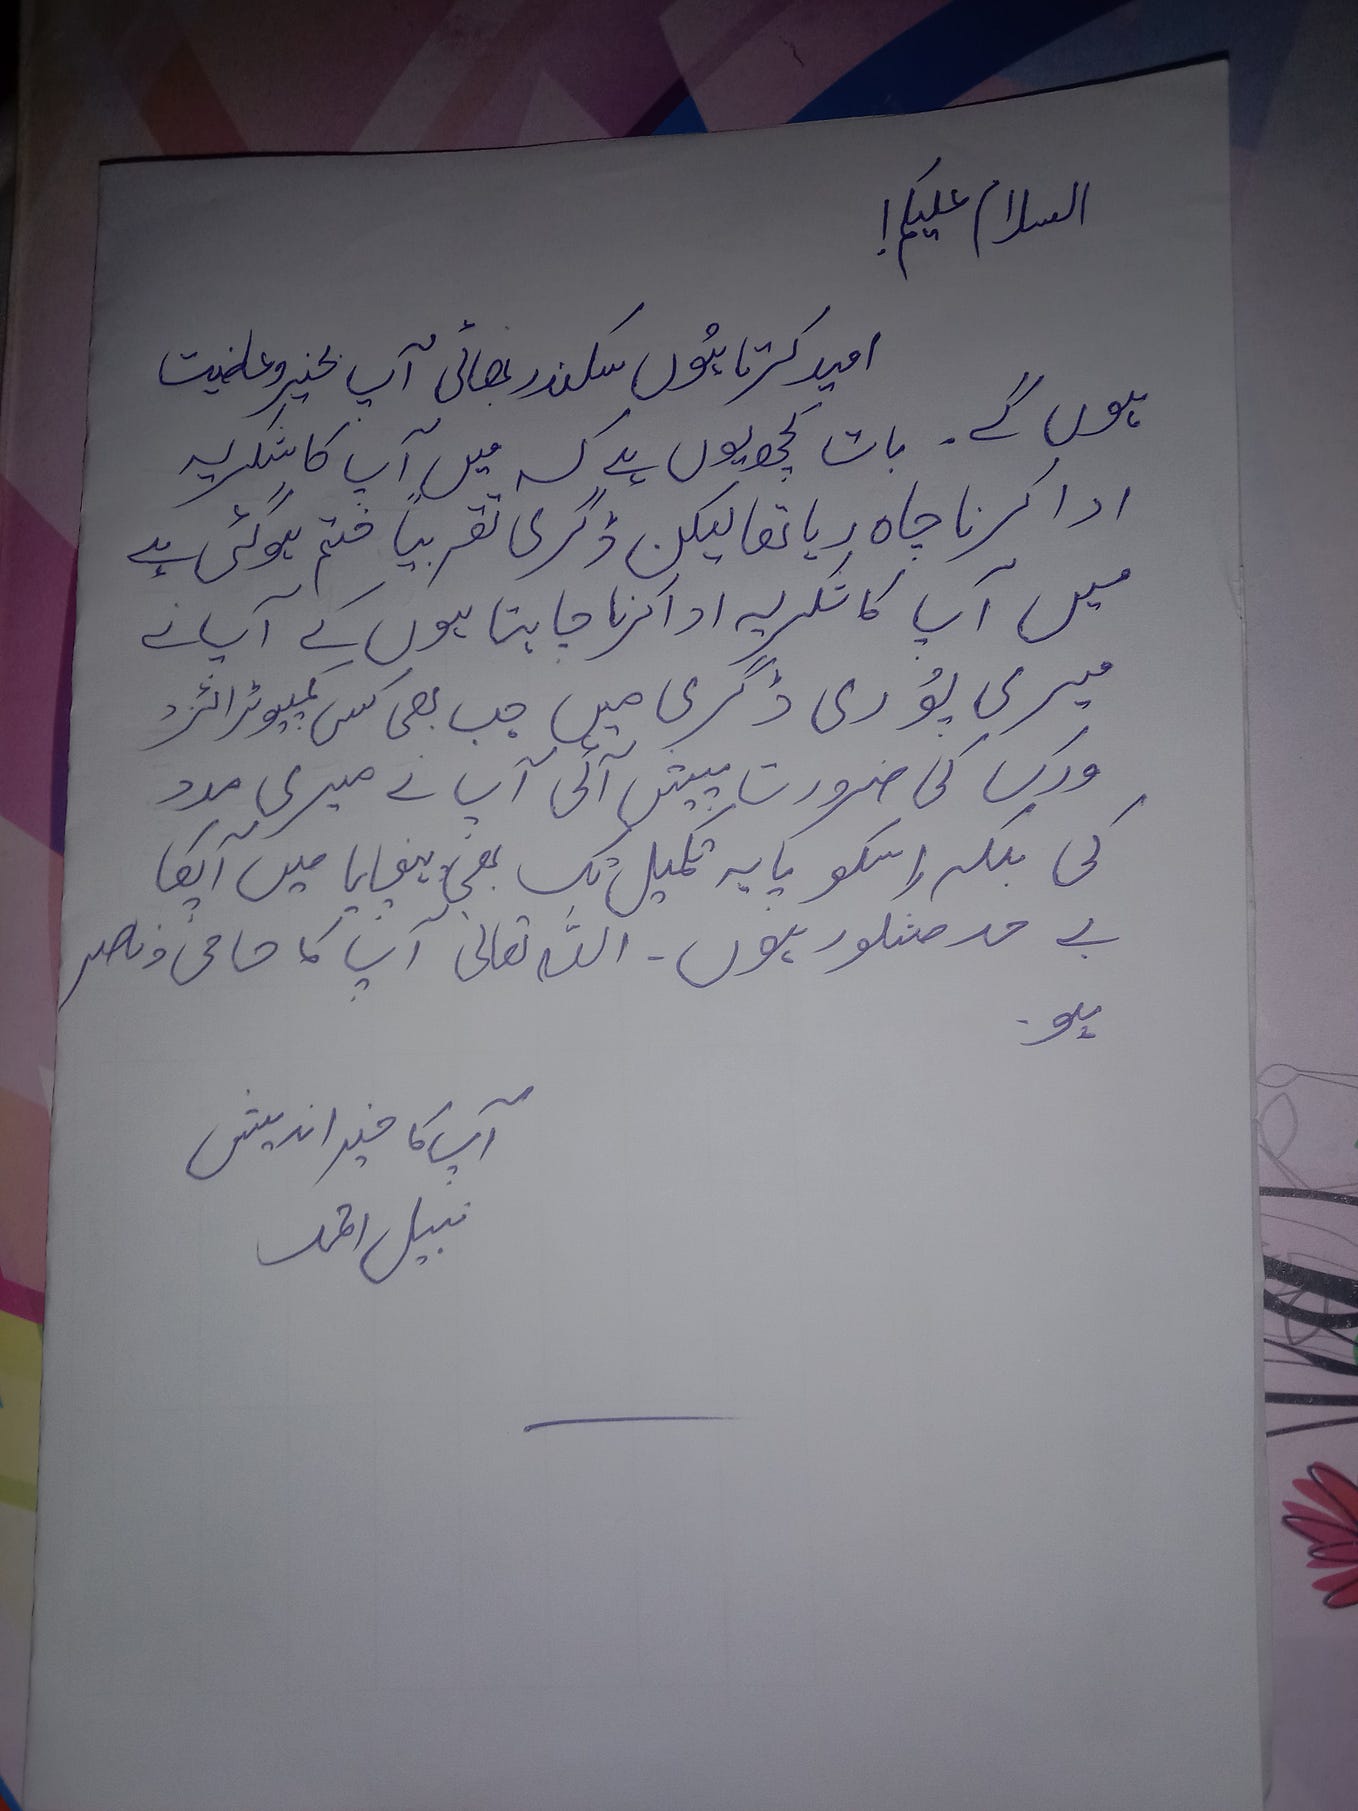 السلام علیکم!
امید کرتا ہُوں سکندر بھائی آپ بخیر و عافیت
ہوں گے۔ بات کچھ یوں ہے کہ میں آپ کا شکریہ
ادا کرنا چاہ رہا تھا لیکن ڈگری تقریباً ختم ہو گئی ہے
میں آپ کا شکریہ ادا کرنا چاہتا ہوں کے آپ نے
میری پوُری ڈگری میں جب بھی کس کمپیوٹرائزڈ
ورک کی ضرورت پیش آئی آپ نے میری مدد
کی بلکہ اِسکو پایہ تکمیل تک بھی پہنچایا میں آپکا
بے حد مشکور ہُوں۔ اللہ تعالیٰ آپ کا حامی و ناصر
ہو۔
آپ کا خیر اندیش
نبیل احمد